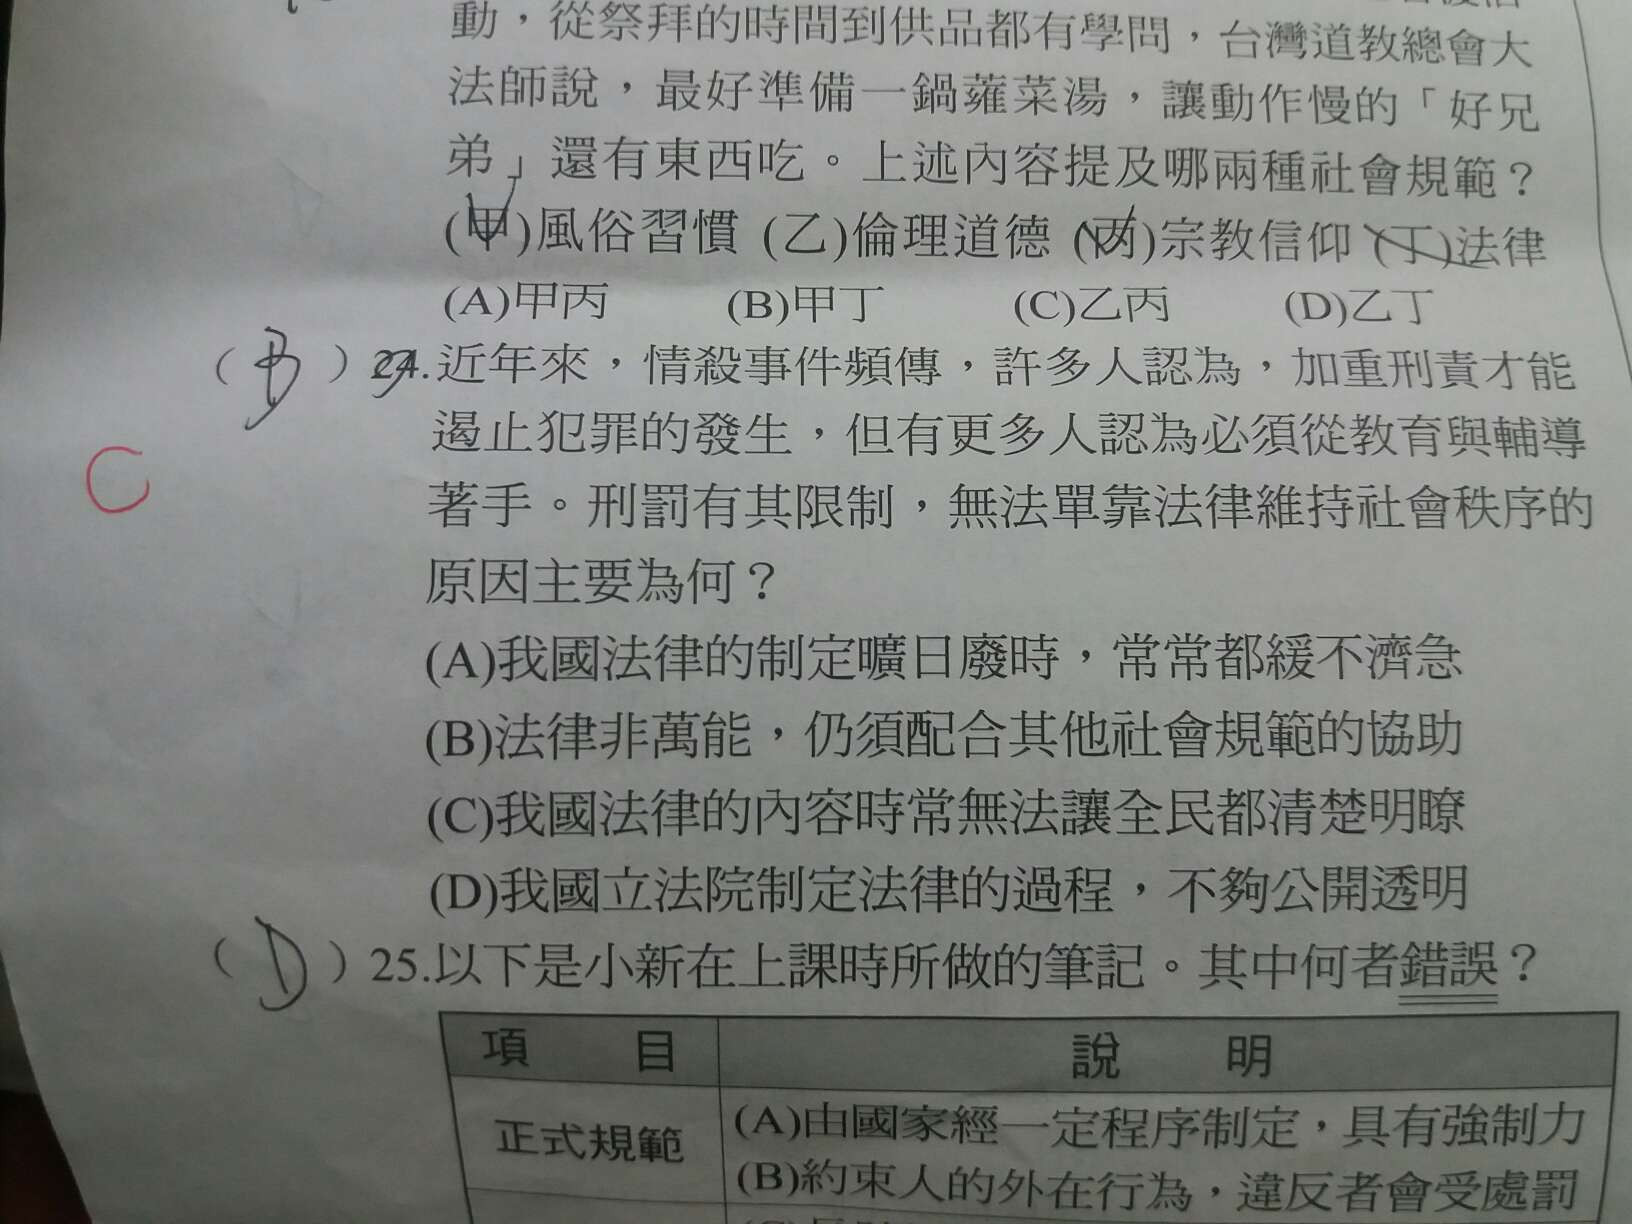 動，從祭拜的時間到供品都有學問，台灣道教總會大
法師說，最好準備一鍋蕹菜湯，讓動作慢的「好兄
弟」還有東西吃。上述內容提及哪兩種社會規範？
(甲)風俗習慣 (乙)倫理道德 (丙)宗教信仰 (丁)法律
(A)甲丙 (B)甲丁 (C)乙丙 (D)乙丁
( B ) 24.近年來，情殺事件頻傳，許多人認為，加重刑責才能
遏止犯罪的發生，但有更多人認為必須從教育與輔導
C
著手。刑罰有其限制，無法單靠法律維持社會秩序的
原因主要為何？
(A)我國法律的制定曠日廢時，常常都緩不濟急
(B)法律非萬能，仍須配合其他社會規範的協助
(C)我國法律的內容時常無法讓全民都清楚明瞭
(D)我國立法院制定法律的過程，不夠公開透明
( D ) 25.以下是小新在上課時所做的筆記。其中何者錯誤？
項目 說明
正式規範
(A)由國家經一定程序制定，具有強制力
(B)約束人的外在行為，違反者會受處罰